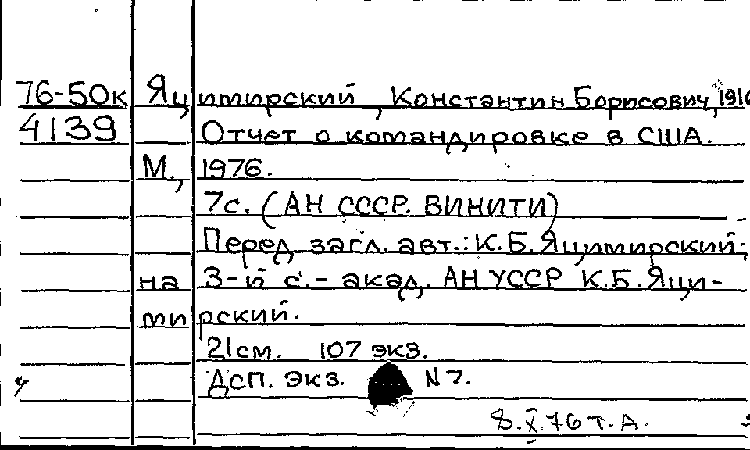 76-50к Яцимирский, Константин Борисович, 1916
4139 Отчет о командировке в США.
М., 1976.
7с. (АН СССР. ВИНИТИ)
Перед загл. авт.: К.Б.Яцимирский;
на 3-й с.- акад. АН УССР К.Б.Яци-
мирский.
21см. 107 экз.
Дсп. Экз. N 7.
8.X.76 т.А.